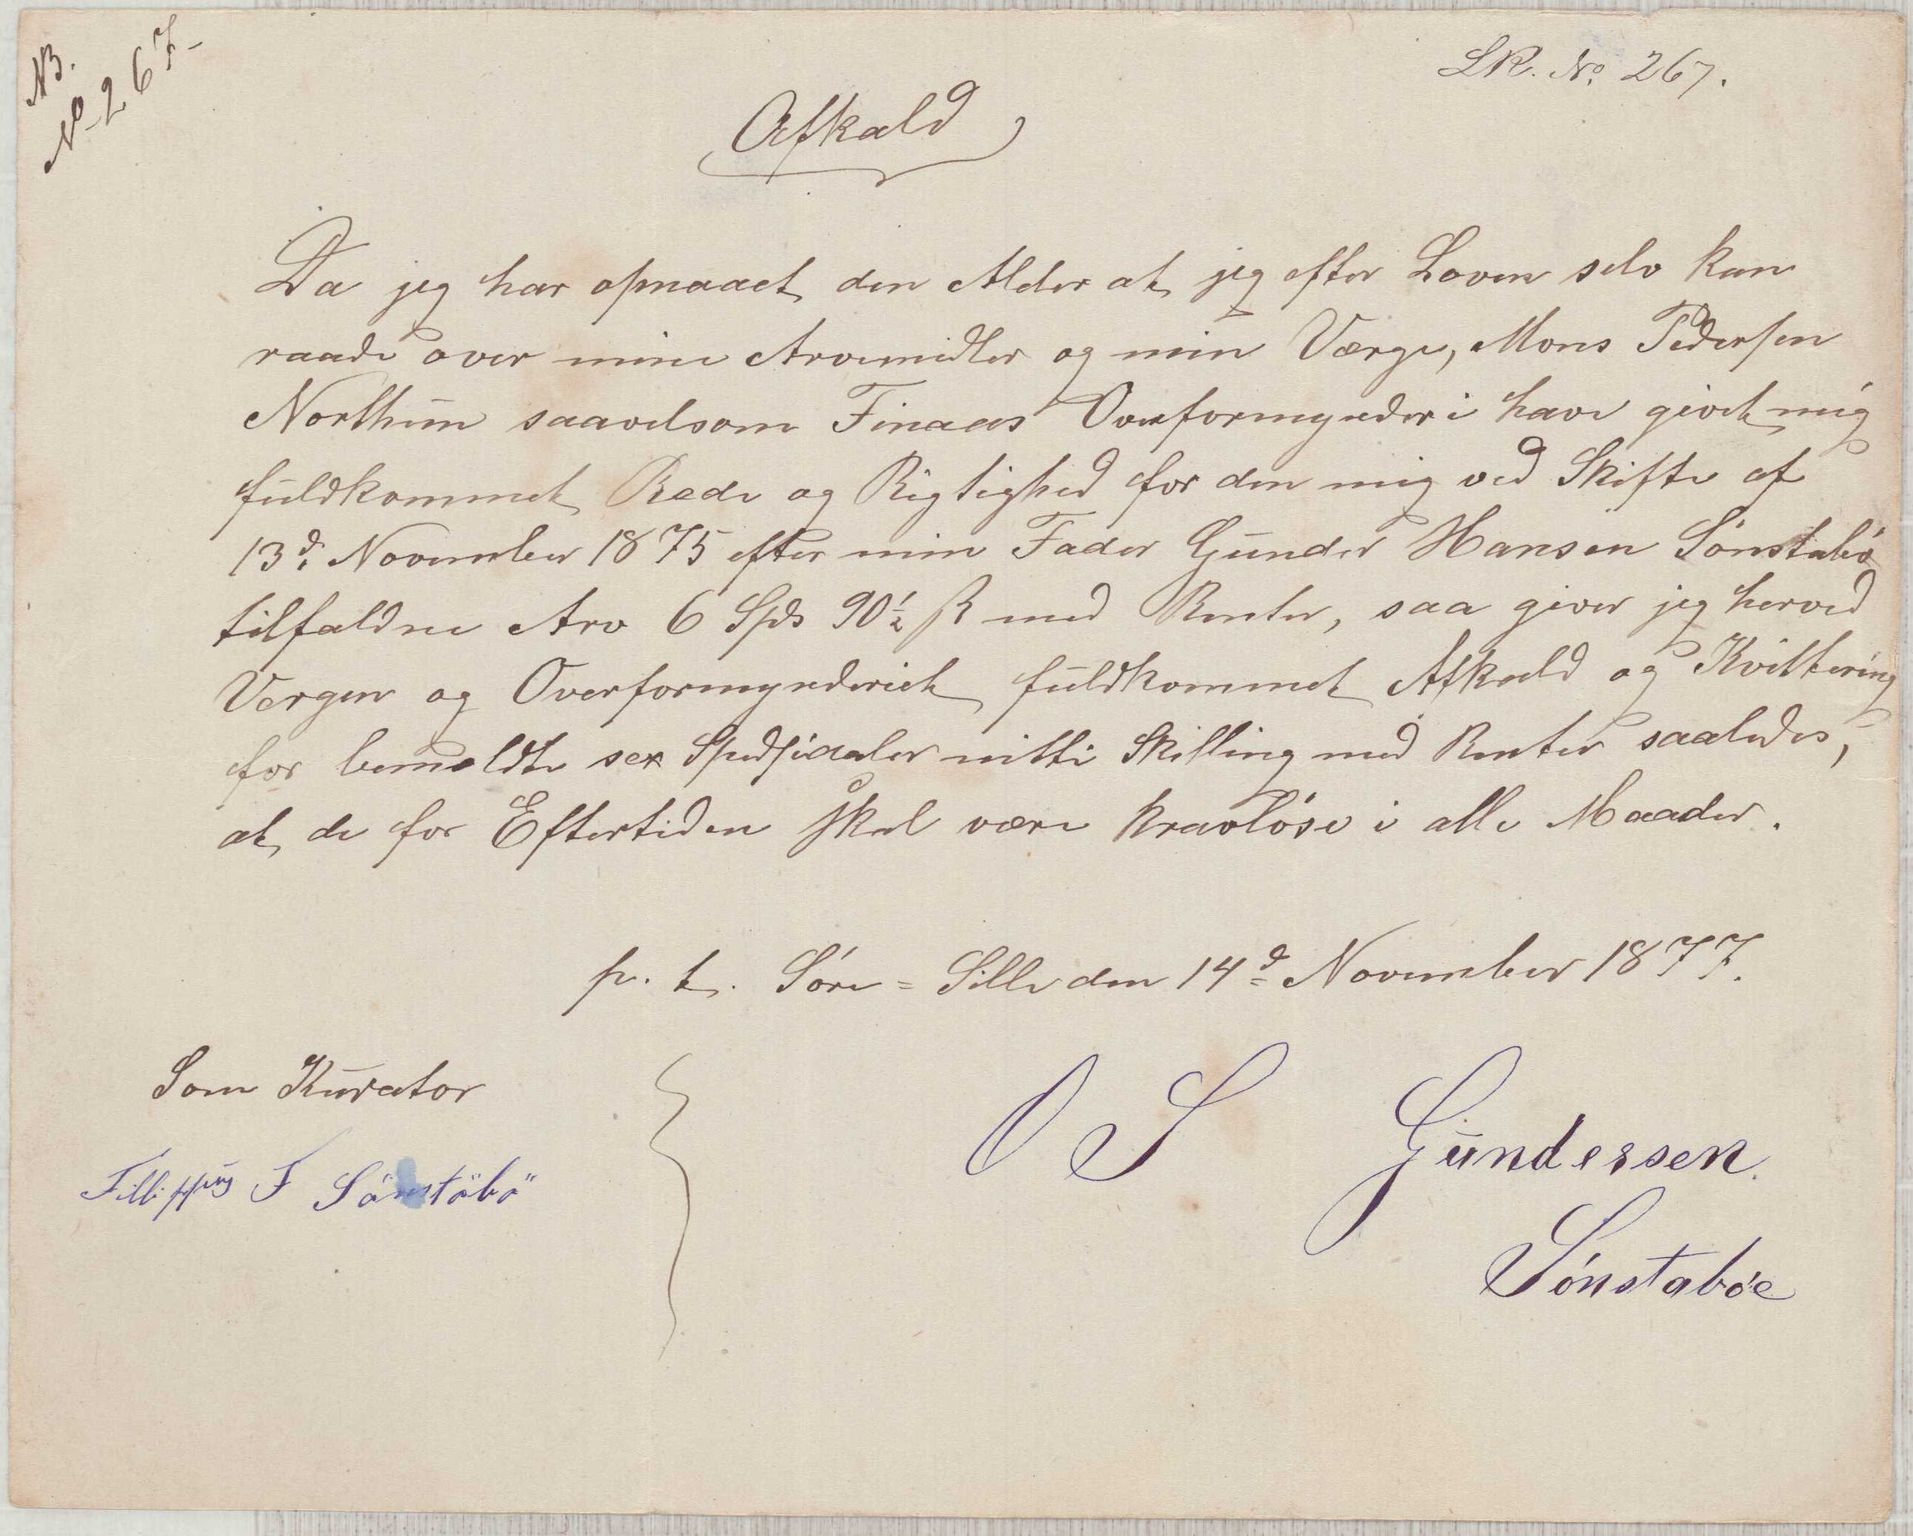 NB.
No 267
LR. No. 267.
Afkald
Da jeg har opnaaet den Alder at jeg efter Loven selv kan
raade over mine Arvemidler og min Værge, Mons Pedersen
Northun saavelsom Finaas Overformynderi have givet mig
fuldkommet Rede og Rigtighed for den mig ved Skifte af
13d. November 1875 efter min Fader Gunder Hansen Sönstabö
tilfaldne Arv 6 Spd 90½ ß med Renter, saa giver jeg herved
Vergen og Overformynderiet fuldkommet Afkald og Kvittering
for bemeldte sex Spedsidaler nitti Skilling med Renter saaledes,
at de for Eftertiden skal være kravlöse i alle Maader.
p. t. Söre=Lille den 14d November 1877.
Som Kurator
Fillippus F Sönstöbö
O S Gundersen.
Sónstabóe